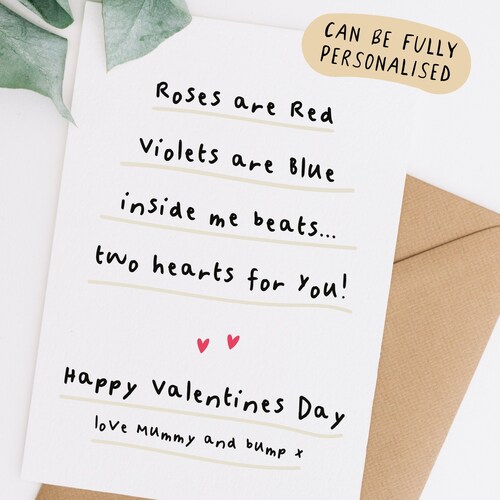 CAN BE FULLY
PERSONALISED
Roses are Red
Violets are Blue
inside me beats...
two hearts for you!
Happy Valentines Day
love Mummy and bump x